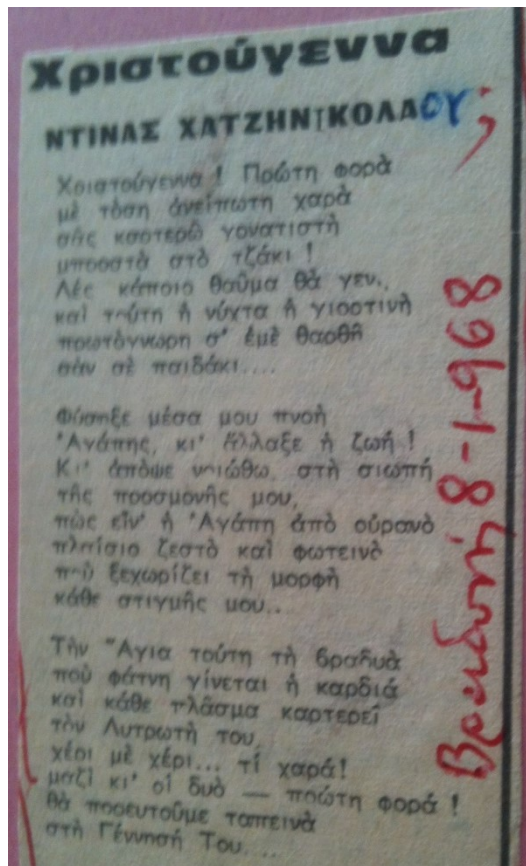 Χριστούγεννα
ΝΤΙΝΑΣ ΧΑΤΖΗΝΙΚΟΛΑΟΥ
Χριστούγεννα ! Πρώτη φορὰ
μὲ τόση ἀνείπωτη χαρὰ
σᾶς καρτερῶ γονατιστὴ
μπροστὰ στὸ τζάκι !
Λὲς κάποιο θαῦμα θὰ γεν..
καὶ τούτη ἡ νύχτα ἡ γιορτινὴ
πρωτόγνωρη σ' ἐμὲ θαρθῆ
σὰν σὲ παιδάκι....
Φύσηξε μέσα μου πνοὴ
'Αγάπης, κι' ἄλλαξε ἡ ζωή !
Κι' ἀπόψε νοιώθω, στὴ σιωπὴ
τῆς προσμονῆς μου,
πὼς εἶν' ἡ 'Αγάπη ἀπὸ οὐρανὸ
πλαίσιο ζεστὸ καὶ φωτεινὸ
ποὺ ξεχωρίζει τὴ μορφὴ
κάθε στιγμῆς μου...
Τὴν Ἅγια τούτη τὴ βραδυὰ
ποὺ φάτνη γίνεται ἡ καρδιά
καὶ κάθε πλᾶσμα καρτερεῖ
τὸν Λυτρωτή του,
χέρι μὲ χέρι... τί χαρά!
μαζὶ κι' οἱ δυὸ — πρώτη φορά !
θὰ πορευτοῦμε ταπεινὰ
στὴ Γέννησή Του....
Βραδυνή 8-1-968